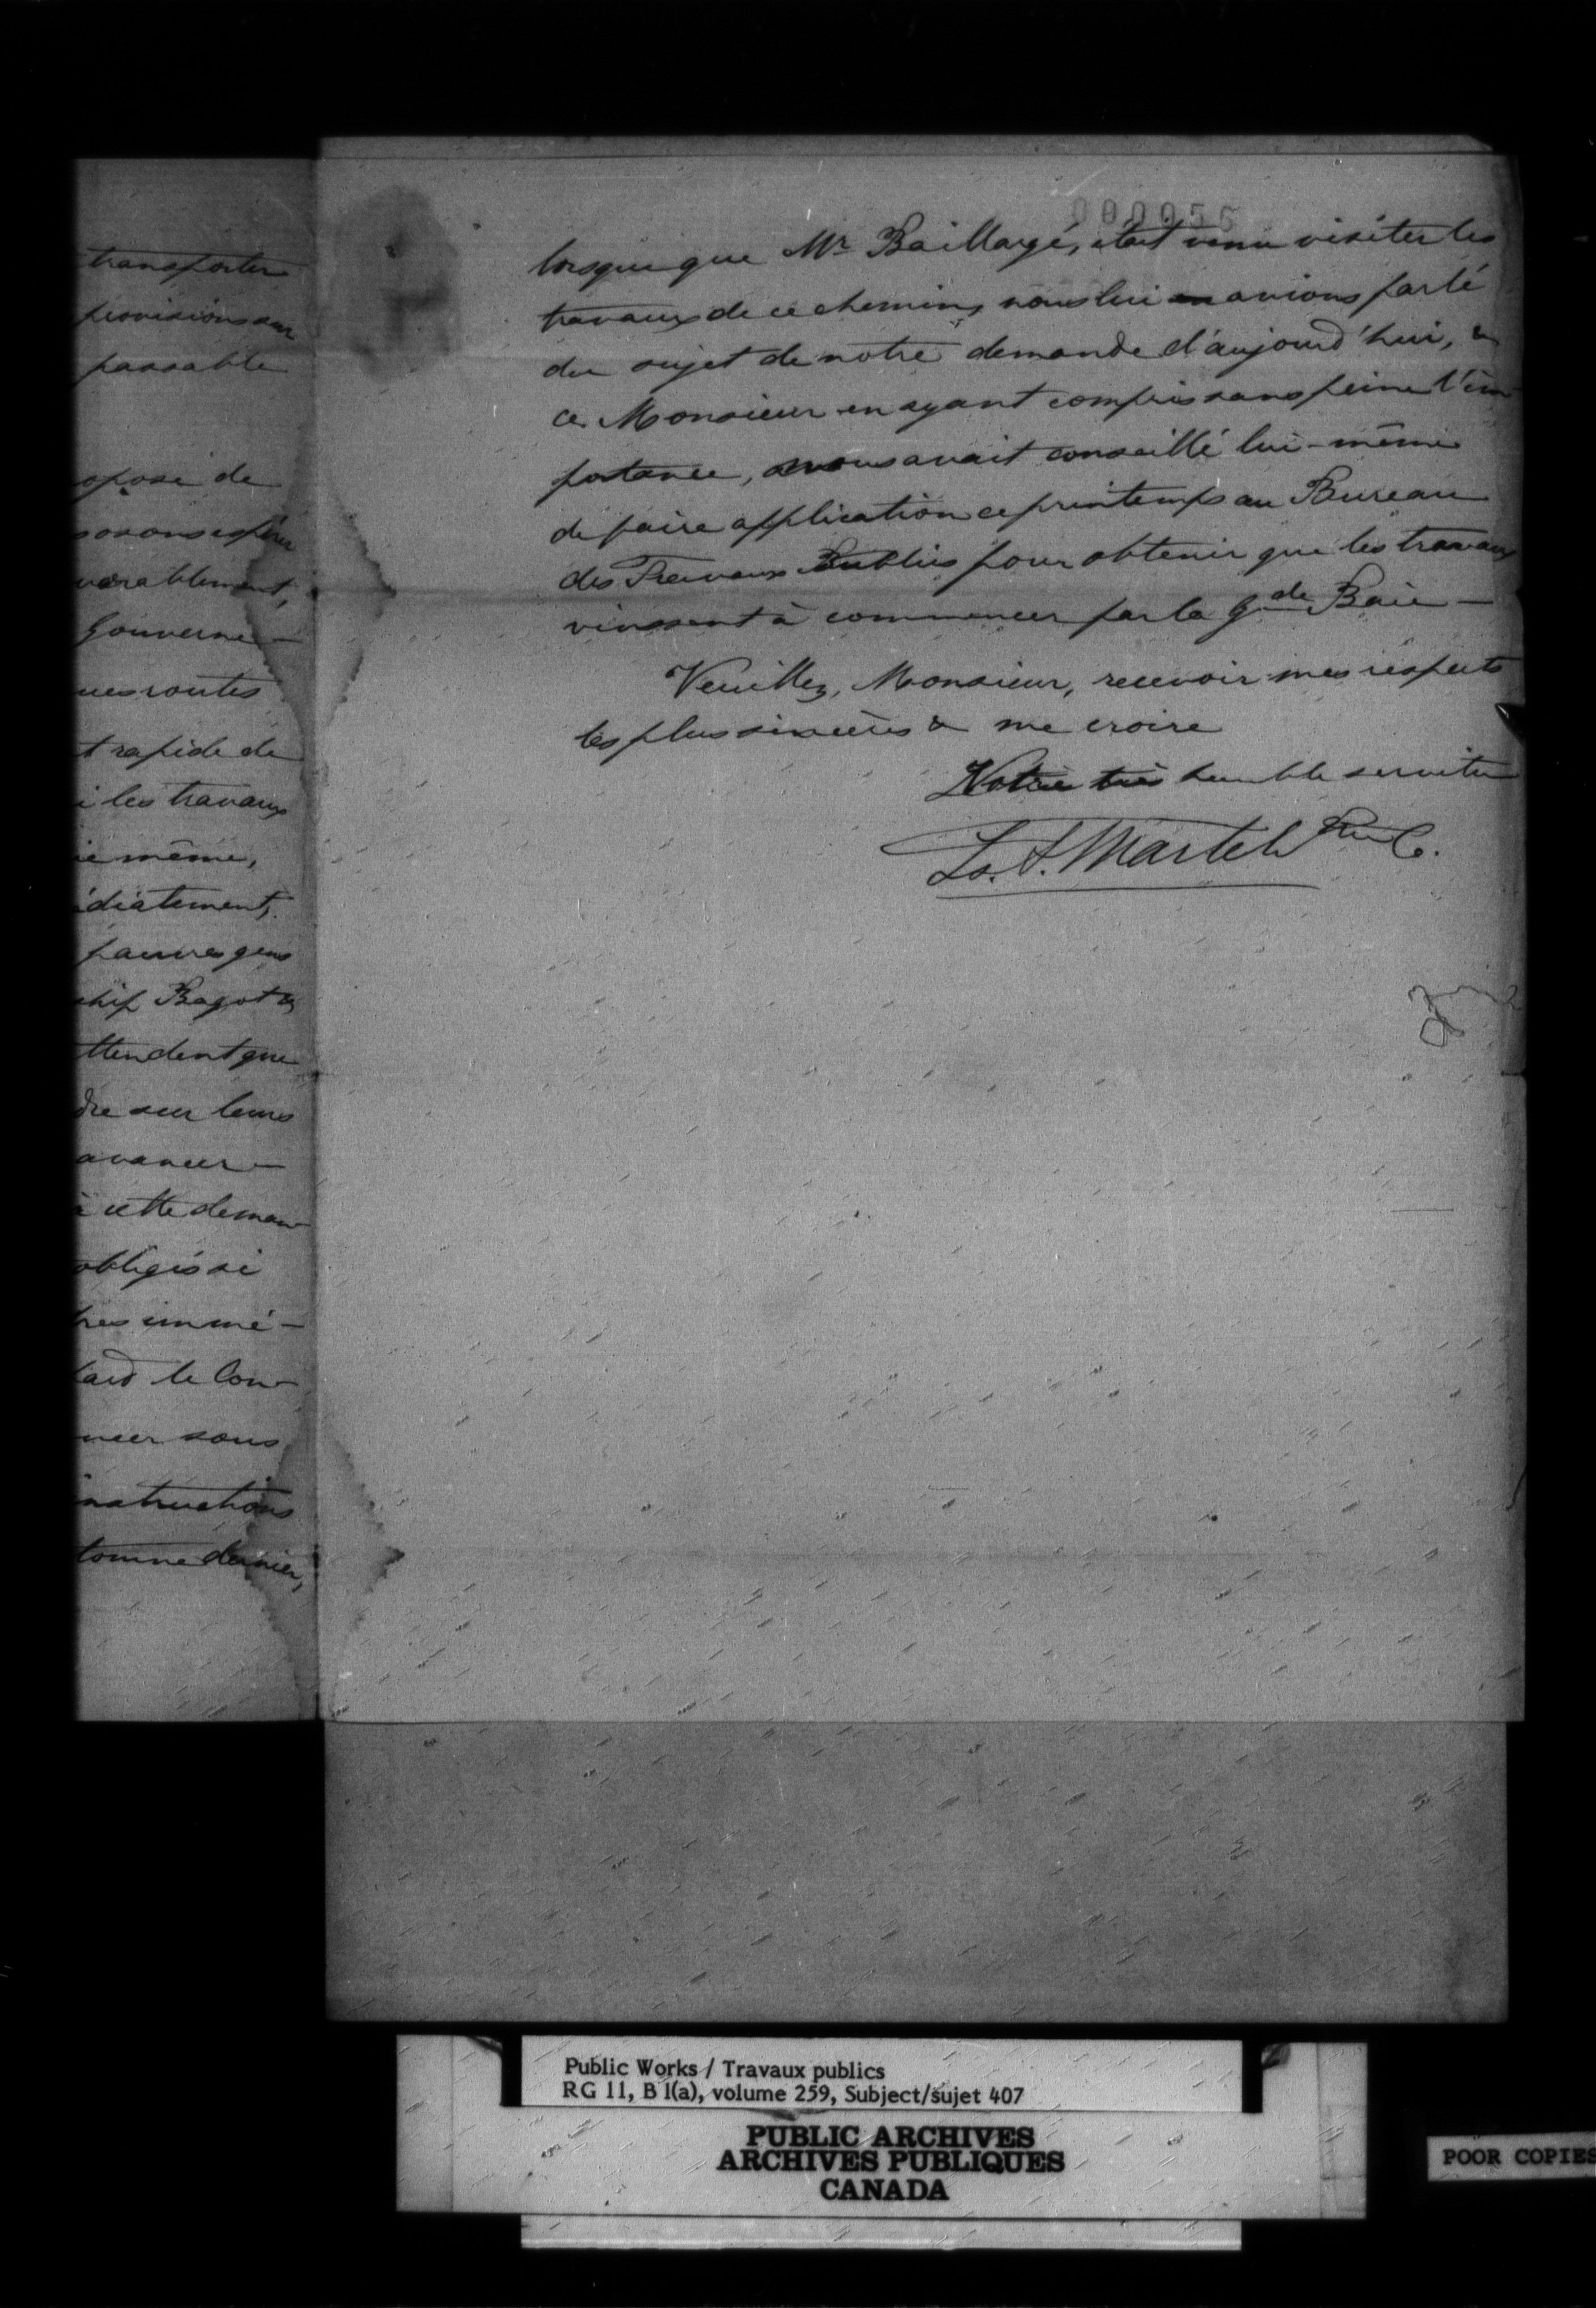 transporter
provisions sur
passable
opose de
osons espérer
vorablement,
Gouverne-
ues routes
t rapide de
i les travaux
ie même,
édiatement,
pauvres gens
ship Bagot &
ttendent que
dre sur leurs
avancer -
à cette deman-
obligés si
tres immé-
tard le Con-
ncer sous
instructions
tomne dernier,
000056
lorsque que Mr Baillargé, était venu visiter les
travaux de ce chemin, nous lui avions parlé
du sujet de notre demande d'aujourd'hui, &
ce Monsieur en ayant compris sans peine l'im-
portance, nous avait conseillé lui-même
de faire application ce printemps au Bureau
des Travaux Publics pour obtenir que les travaux
vinssent à commencer par la Gde Baie -
Veuillez, Monsieur, recevoir mes respects
les plus sincères & me croire
Votre très humble serviteur
Ls. S. Martel
Public Works / Travaux publics
RG 11, B 1(a), volume 259, Subject/sujet 407
PUBLIC ARCHIVES
ARCHIVES PUBLIQUES
CANADA
POOR COPIES